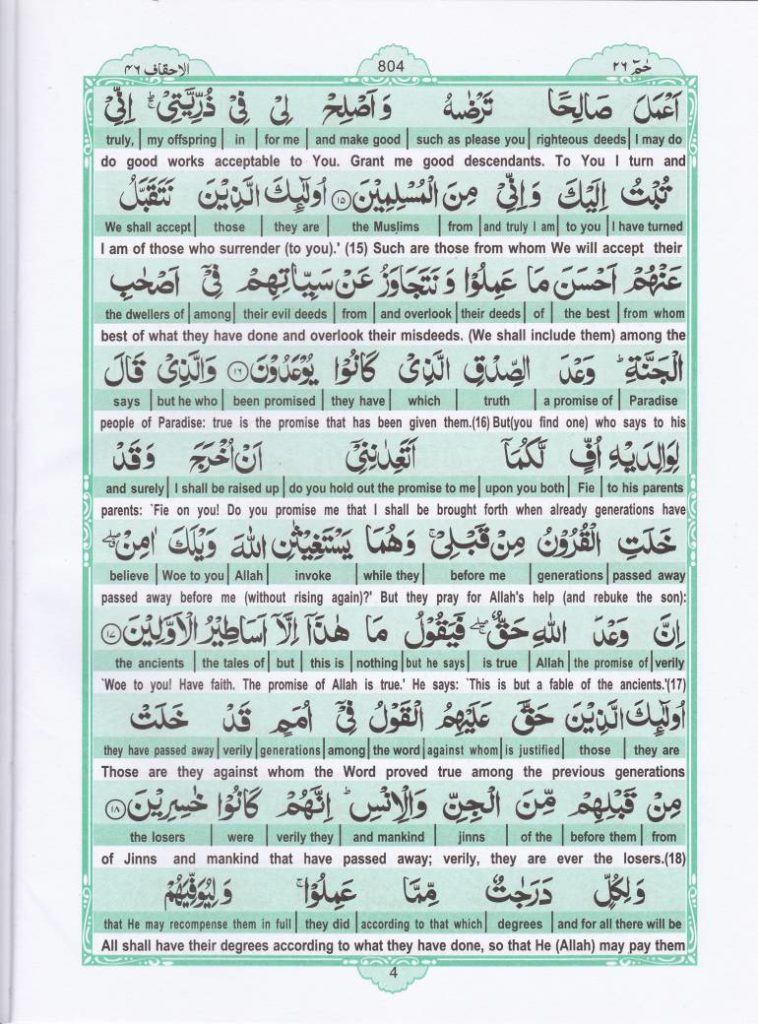 الاحقاف ۴۶ 804 حٰمٓ ۲۶
اَعْمَلَ صَالِحًا تَرْضٰىهُ وَاَصْلِحْ لِیْ فِیْ ذُرِّیَّتِیْ ۚ اِنِّیْ
truly, | my offspring | in | for me | and make good | such as please you | righteous deeds | I may do
do good works acceptable to You. Grant me good descendants. To You I turn and
تُبْتُ اِلَیْكَ وَاِنِّیْ مِنَ الْمُسْلِمِیْنَ ۱۵ اُولٰٓئِكَ الَّذِیْنَ نَتَقَبَّلُ
We shall accept | those | they are | the Muslims | from | and truly I am | to you | I have turned
I am of those who surrender (to you).' (15) Such are those from whom We will accept their
عَنْهُمْ اَحْسَنَ مَا عَمِلُوْا وَنَتَجَاوَزُ عَنْ سَیِّاٰتِهِمْ فِیْۤ اَصْحٰبِ
the dwellers of | among | their evil deeds | from | and overlook | their deeds | of | the best | from whom
best of what they have done and overlook their misdeeds. (We shall include them) among the
الْجَنَّةِ ؕ وَعْدَ الصِّدْقِ الَّذِیْ كَانُوْا یُوْعَدُوْنَ ۱۶ وَالَّذِیْ قَالَ
says | but he who | been promised | they have | which | truth | a promise of | Paradise
people of Paradise: true is the promise that has been given them.(16) But(you find one) who says to his
لِوَالِدَیْهِ اُفٍّ لَّكُمَاۤ اَتَعِدٰنِنِیْۤ اَنْ اُخْرَجَ وَقَدْ
and surely | I shall be raised up | do you hold out the promise to me | upon you both | Fie | to his parents
parents: `Fie on you! Do you promise me that I shall be brought forth when already generations have
خَلَتِ الْقُرُوْنُ مِنْ قَبْلِیْ ۚ وَهُمَا یَسْتَغِیْثٰنِ اللّٰهَ وَیْلَكَ اٰمِنْ ۖۗ
believe | Woe to you | Allah | invoke | while they | before me | generations | passed away
passed away before me (without rising again)?' But they pray for Allah's help (and rebuke the son):
اِنَّ وَعْدَ اللّٰهِ حَقٌّ ۖۚ فَیَقُوْلُ مَا هٰذَاۤ اِلَّاۤ اَسَاطِیْرُ الْاَوَّلِیْنَ ۱۷
the ancients | the tales of | but | this is | nothing | but he says | is true | Allah | the promise of | verily
`Woe to you! Have faith. The promise of Allah is true.' He says: `This is but a fable of the ancients.'(17)
اُولٰٓئِكَ الَّذِیْنَ حَقَّ عَلَیْهِمُ الْقَوْلُ فِیْۤ اُمَمٍ قَدْ خَلَتْ
they have passed away | verily | generations | among | the word | against whom | is justified | those | they are
Those are they against whom the Word proved true among the previous generations
مِنْ قَبْلِهِمْ مِّنَ الْجِنِّ وَالْاِنْسِ ؕ اِنَّهُمْ كَانُوْا خٰسِرِیْنَ ۱۸
the losers | were | verily they | and mankind | jinns | of the | before them | from
of Jinns and mankind that have passed away; verily, they are ever the losers.(18)
وَلِكُلٍّ دَرَجٰتٌ مِّمَّا عَمِلُوْا ۚ وَلِیُوَفِّیَهُمْ
that He may recompense them in full | they did | according to that which | degrees | and for all there will be
All shall have their degrees according to what they have done, so that He (Allah) may pay them
4